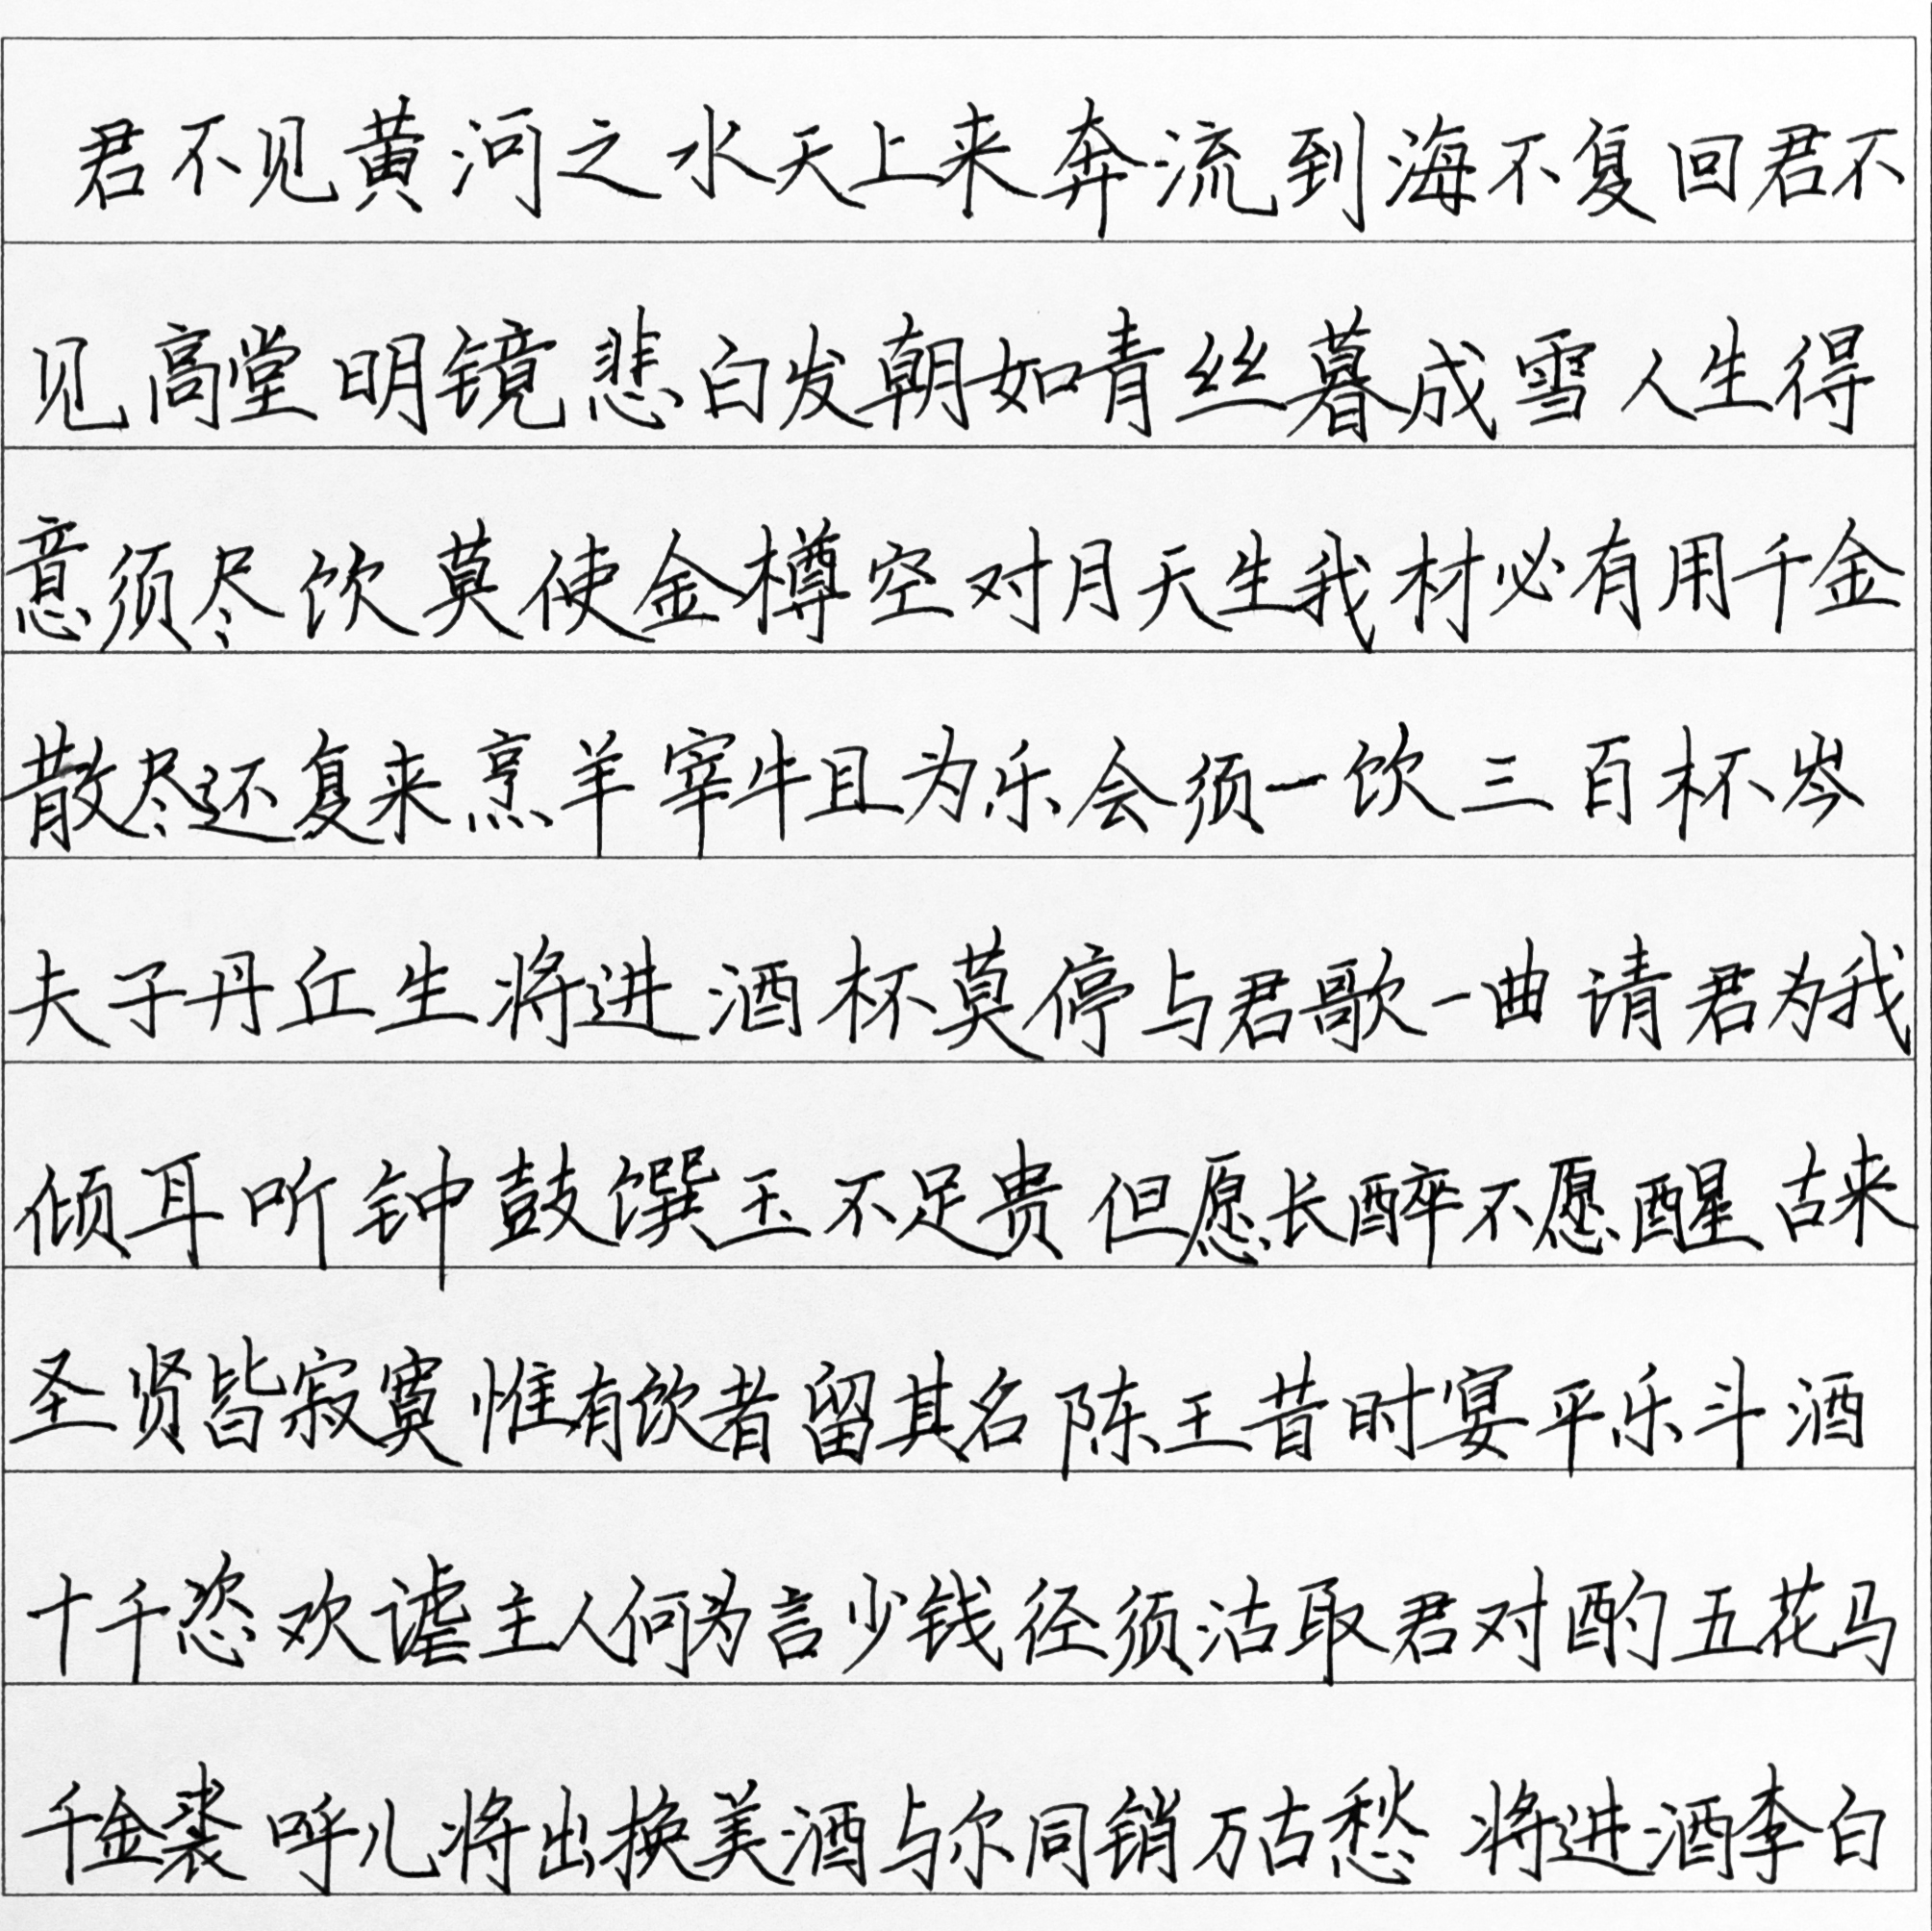 君不见黄河之水天上来奔流到海不复回君不
见高堂明镜悲白发朝如青丝暮成雪人生得
意须尽饮莫使金樽空对月天生我材必有用千金
散尽还复来烹羊宰牛且为乐会须一饮三百杯岑
夫子丹丘生将进酒杯莫停与君歌一曲请君为我
倾耳听钟鼓馔玉不足贵但愿长醉不愿醒古来
圣贤皆寂寞惟有饮者留其名陈王昔时宴平乐斗酒
十千恣欢谑主人何为言少钱径须沽取君对酌五花马
千金裘呼儿将出换美酒与尔同销万古愁 将进酒李白